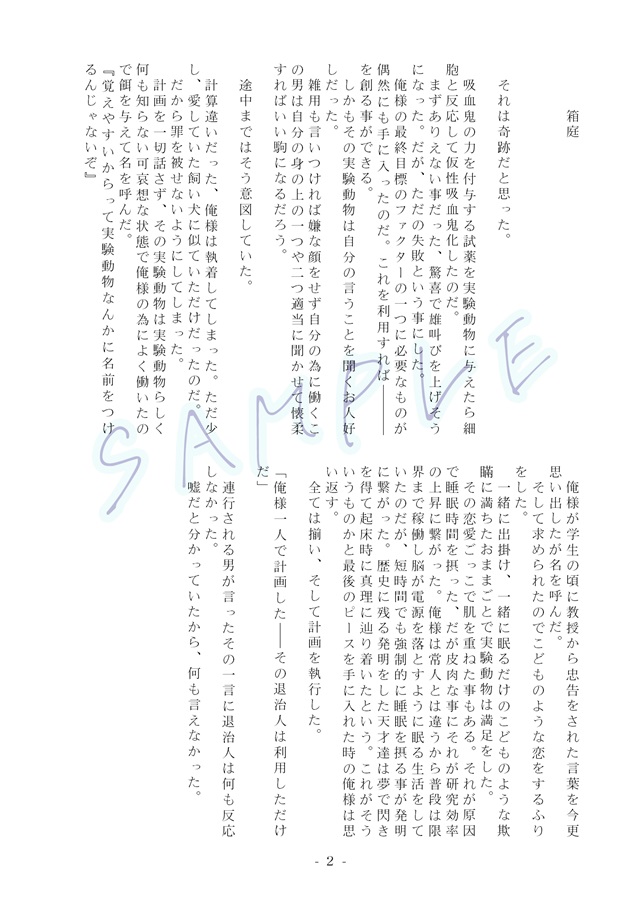 箱庭
それは奇跡だと思った。
吸血鬼の力を付与する試薬を実験動物に与えたら細
胞と反応して仮性吸血鬼化したのだ。
まずありえない事だった、驚喜で雄叫びを上げそう
になった。だが、ただの失敗という事にした。
俺様の最終目標のファクターの一つに必要なものが
偶然にも手に入ったのだ。これを利用すれば――――
を創る事ができる。
しかもその実験動物は自分の言うことを聞くお人好
しだった。
雑用も言いつければ嫌な顔をせず自分の為に働くこ
の男は自分の身の上の一つや二つ適当に聞かせて懐柔
すればいい駒になるだろう。
途中まではそう意図していた。
計算違いだった、俺様は執着してしまった。ただ少
し、愛していた飼い犬に似ていただけだったのだ。
だから罪を被せないようにしてしまった。
計画を一切話さず、その実験動物は実験動物らしく
何も知らない可哀想な状態で俺様の為によく働いたの
で餌を与えて名を呼んだ。
『覚えやすいからって実験動物なんかに名前をつけ
るんじゃないぞ』
俺様が学生の頃に教授から忠告をされた言葉を今更
思い出したが名を呼んだ。
そして求められたのでこどものような恋をするふり
をした。
一緒に出掛け、一緒に眠るだけのこどものような欺
瞞に満ちたおままごとで実験動物は満足をした。
その恋愛ごっこで肌を重ねた事もある。それが原因
で睡眠時間を摂った、だが皮肉な事にそれが研究効率
の上昇に繋がった。俺様は常人とは違うから普段は限
界まで稼働し脳が電源を落とすように眠る生活をして
いたのだが、短時間でも強制的に睡眠を摂る事が発明
に繋がった。歴史に残る発明をした天才達は夢で閃き
を得て起床時に真理に辿り着いたという。これがそう
いうものかと最後のピースを手に入れた時の俺様は思
い返す。
全ては揃い、そして計画を執行した。
「俺様一人で計画した――その退治人は利用しただけ
だ」
連行される男が言ったその一言に退治人は何も反応
しなかった。
嘘だと分かっていたから、何も言えなかった。
- 2 -
SAMPLE